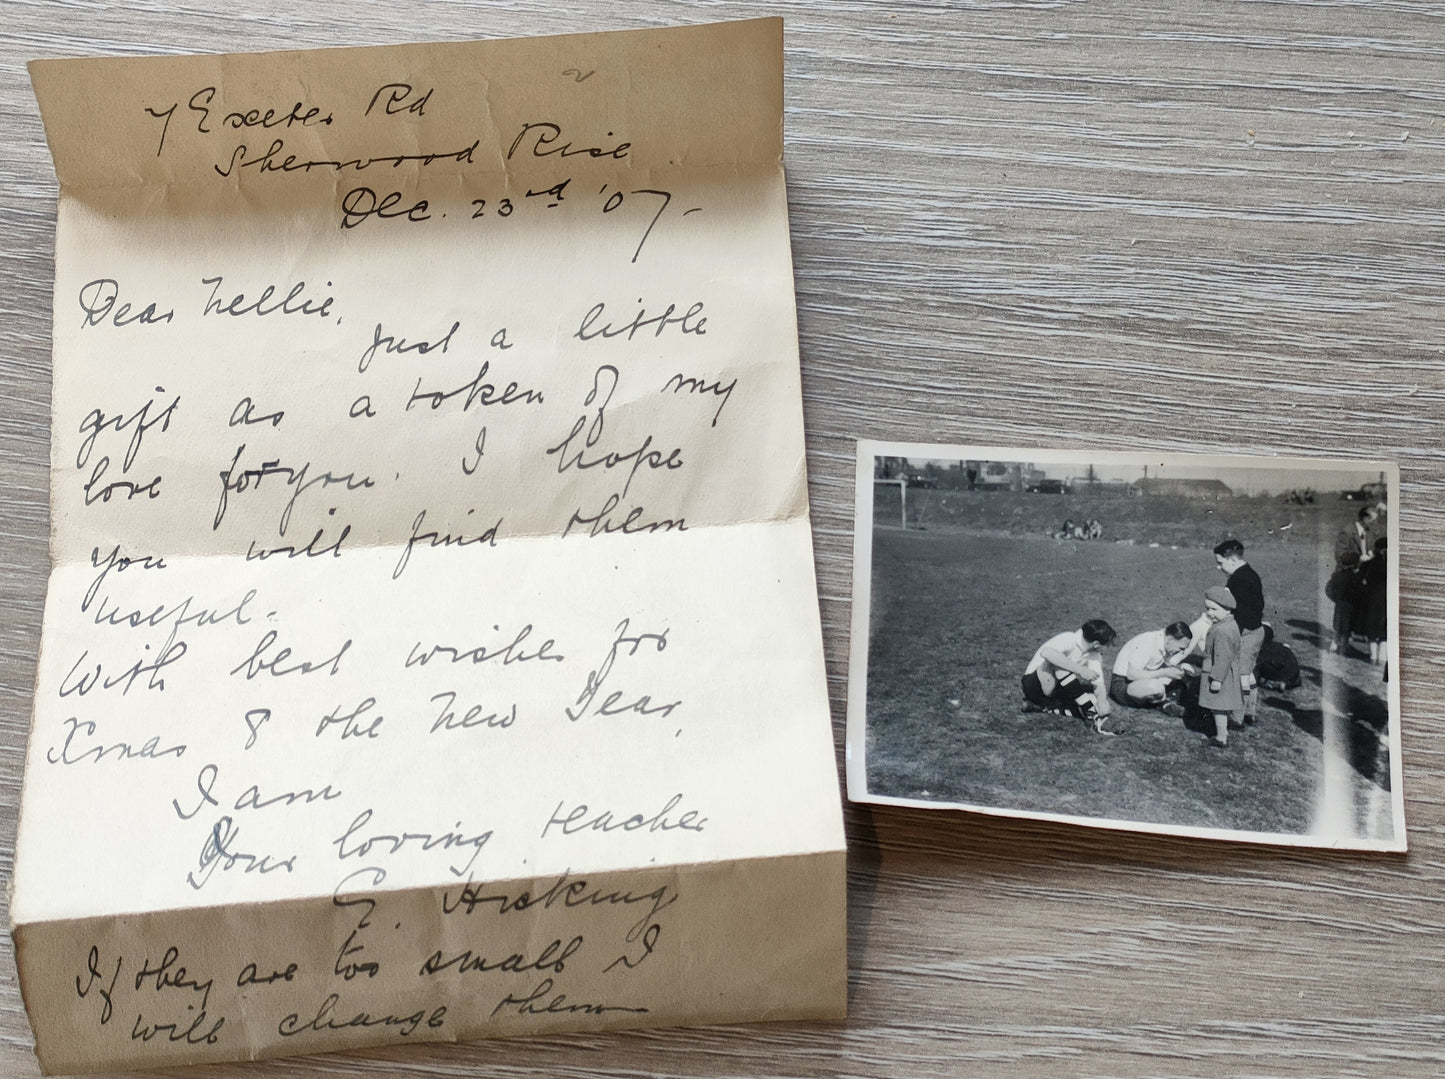 7 Exeter Rd
Sherwood Rise
Dec. 23rd '07-
Dear Nellie,
Just a little
gift as a token of my
love for you. I hope
you will find them
useful-
With best wishes for
Xmas & the New Year,
I am
Your loving teacher
E. Hicking
If they are too small I
will change them